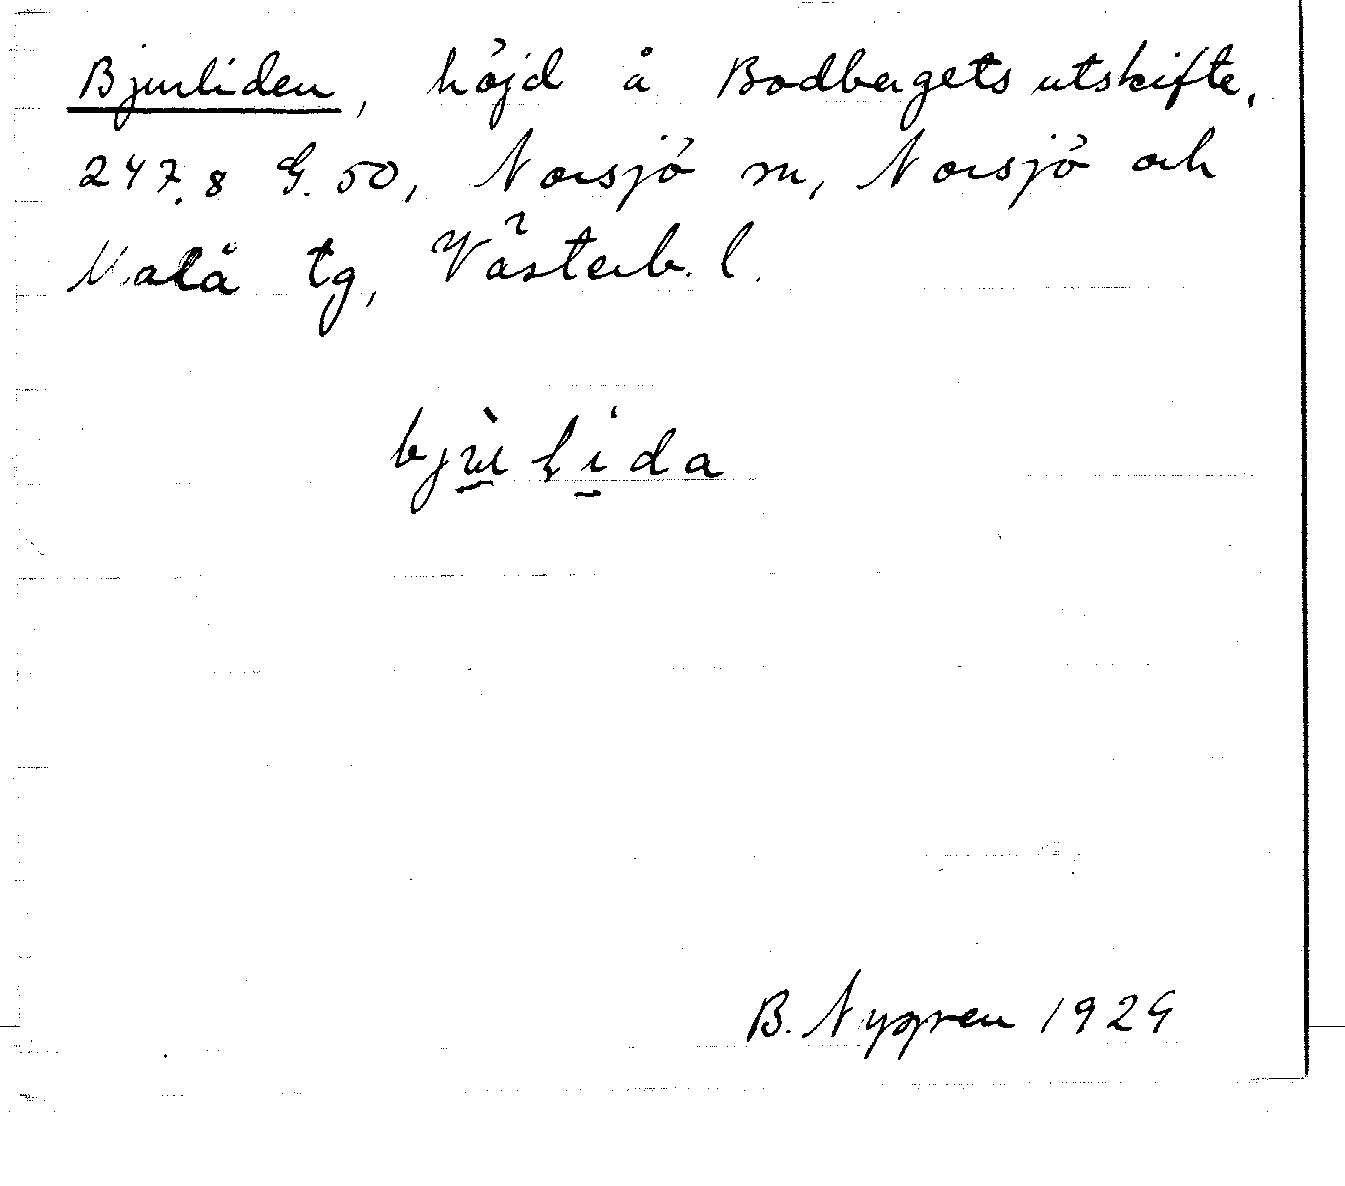 Bjurliden, höjd å Bodbergets utskifte,
247.8 G. 50, Norsjö sn, Norsjö och
Malå tg, Västerb. l.
B. Nygren 1929